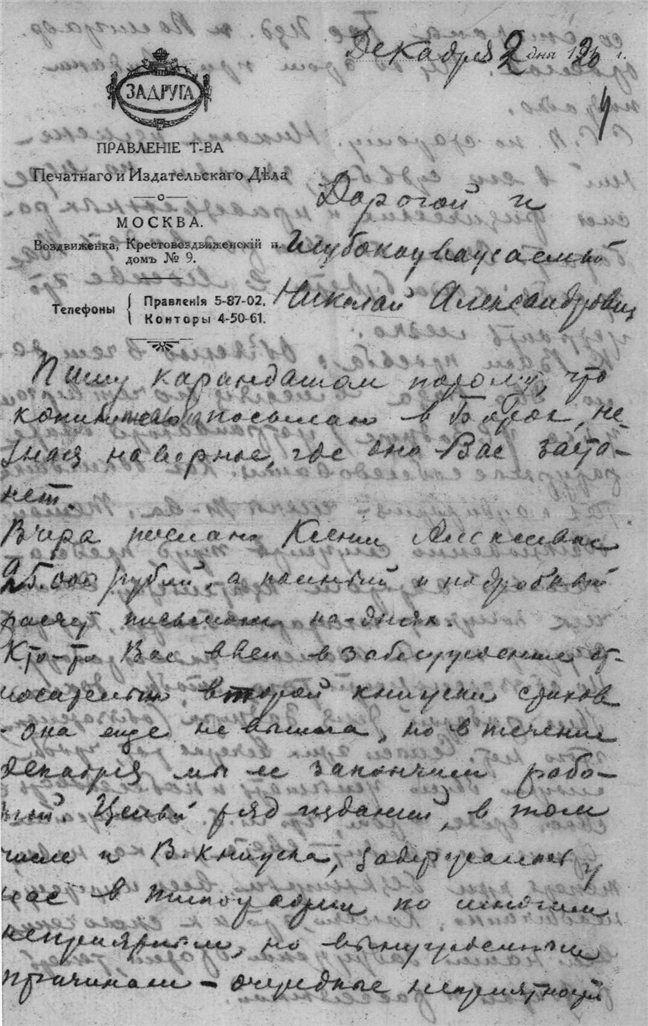 Декабря 2 дня 1920 г.
ЗАДРУГА
ПРАВЛЕНІЕ Т-ВА
Печатнаго и Издательскаго Дѣла
МОСКВА.
Воздвиженка, Крестовоздвиженскій п.
домъ № 9.
Телефоны { Правленія 5-87-02,
Конторы 4-50-61.
Дорогой и
Глубокоуважаемый
Николай Александрович
Пишу карандашом потому, что
копию посылаю в Борок, не
зная наверное, где оно Вас заста-
нет.
Вчера послано Ксении Алексеевне
25.000 рублей, а полный и подробный
расчет письмом на-днях.
Кто-то Вас ввел в заблуждение от-
носительно второй книжки стихов
- она еще не вышла, но в течении
декабря мы ее закончим рабо-
той Целый ряд изданий, в том
числе и В. книжка, задержались у
нас в типографии по многим
неприятным, но вынужденным
причинам – очередные неприятности